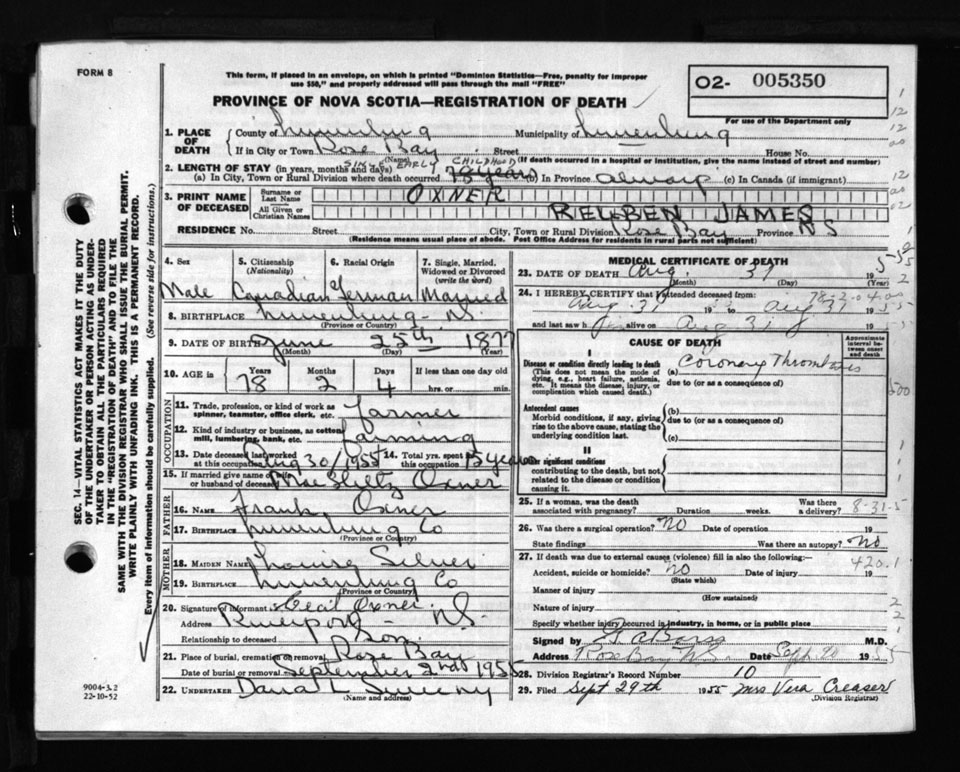 FORM 8
This form, if placed in an envelope, on which is printed "Dominion Statistics—Free, penalty for improper
use $50," and properly addressed will pass through the mail "FREE"
O2- 005350
PROVINCE OF NOVA SCOTIA—REGISTRATION OF DEATH
For use of the Department only
1. PLACE OF DEATH
County of Lunenburg Municipality of Lunenburg
If in City or Town Rose Bay Street House No.
(Name) (If death occurred in a hospital or institution, give the name instead of street and number)
2. LENGTH OF STAY (in years, months and days) SINCE EARLY CHILDHOOD
(a) In City, Town or Rural Division where death occurred 78 years (b) In Province always (c) In Canada (if immigrant)
3. PRINT NAME OF DECEASED
Surname or Last Name OXNER
All Given or Christian Names REUBEN JAMES
RESIDENCE No. Street City, Town or Rural Division Rose Bay Province NS
(Residence means usual place of abode. Post Office Address for residents in rural parts not sufficient)
4. Sex 5. Citizenship (Nationality) 6. Racial Origin 7. Single, Married, Widowed or Divorced (write the word)
Male Canadian German Married
8. BIRTHPLACE Lunenburg - NS.
(Province or Country)
9. DATE OF BIRTH June 25th 1877
(Month) (Day) (Year)
10. AGE in Years Months Days If less than one day old
78 2 4 hrs. or min.
OCCUPATION
11. Trade, profession, or kind of work as spinner, teamster, office clerk, etc. farmer
12. Kind of industry or business, as cotton mill, lumbering, bank, etc. farming
13. Date deceased last worked at this occupation Aug 30/1955 14. Total yrs. spent in this occupation years
15. If married give name of wife or husband of deceased Mae Oxner
FATHER
16. Name Frank Oxner
17. Birthplace Lunenburg Co
(Province or Country)
MOTHER
18. MAIDEN NAME Louisa Silver
19. BIRTHPLACE Lunenburg Co
(Province or Country)
20. Signature of informant Cecil Oxner
Address Riverport - NS.
Relationship to deceased Son
21. Place of burial, cremation or removal Rose Bay
Date of burial or removal September 2nd 1955
22. UNDERTAKER Dana L Sweeny
(Name and address)
MEDICAL CERTIFICATE OF DEATH
23. DATE OF DEATH Aug. 31 1955
(Month) (Day)
24. I HEREBY CERTIFY that I attended deceased from
Aug 31 1955 to Aug 31 1955
and last saw h alive on Aug 31 1955
CAUSE OF DEATH
Approximate interval between onset and death
I
Disease or condition directly leading to death
(This does not mean the mode of dying, e.g., heart failure, asthenia, etc. It means the disease, injury, or complication which caused death.)
(a) Coronary Thrombosis
due to (or as a consequence of)
Antecedent causes
Morbid conditions, if any, giving rise to the above cause, stating the underlying condition last.
(b)
due to (or as a consequence of)
(c)
II
Other significant conditions
contributing to the death, but not related to the disease or condition causing it.
25. If a woman, was the death associated with pregnancy? Duration weeks. Was there a delivery?
8-31-5
26. Was there a surgical operation? NO Date of operation 19
State findings Was there an autopsy? No
27. If death was due to external causes (violence) fill in also the following:—
420.1
Accident, suicide or homicide? no Date of injury 19
(State which)
Manner of injury
(How sustained)
Nature of injury
Specify whether injury occurred in industry, in home, or in public place
Signed by M.D.
Address Rose Bay N.S. Date Sept. 20 1955
28. Division Registrar's Record Number 10
29. Filed Sept 29th 1955 Mrs Vera Creaser
(Division Registrar)
SEC. 14—VITAL STATISTICS ACT MAKES IT THE DUTY
OF THE UNDERTAKER OR PERSON ACTING AS UNDER-
TAKER TO OBTAIN ALL THE PARTICULARS REQUIRED
IN THE "REGISTRATION OF DEATH" AND TO FILE THE
SAME WITH THE DIVISION REGISTRAR WHO SHALL ISSUE THE BURIAL PERMIT.
WRITE PLAINLY WITH UNFADING INK. THIS IS A PERMANENT RECORD.
Every item of information should be carefully supplied. (See reverse side for instructions.)
9004-3.2
22-10-52